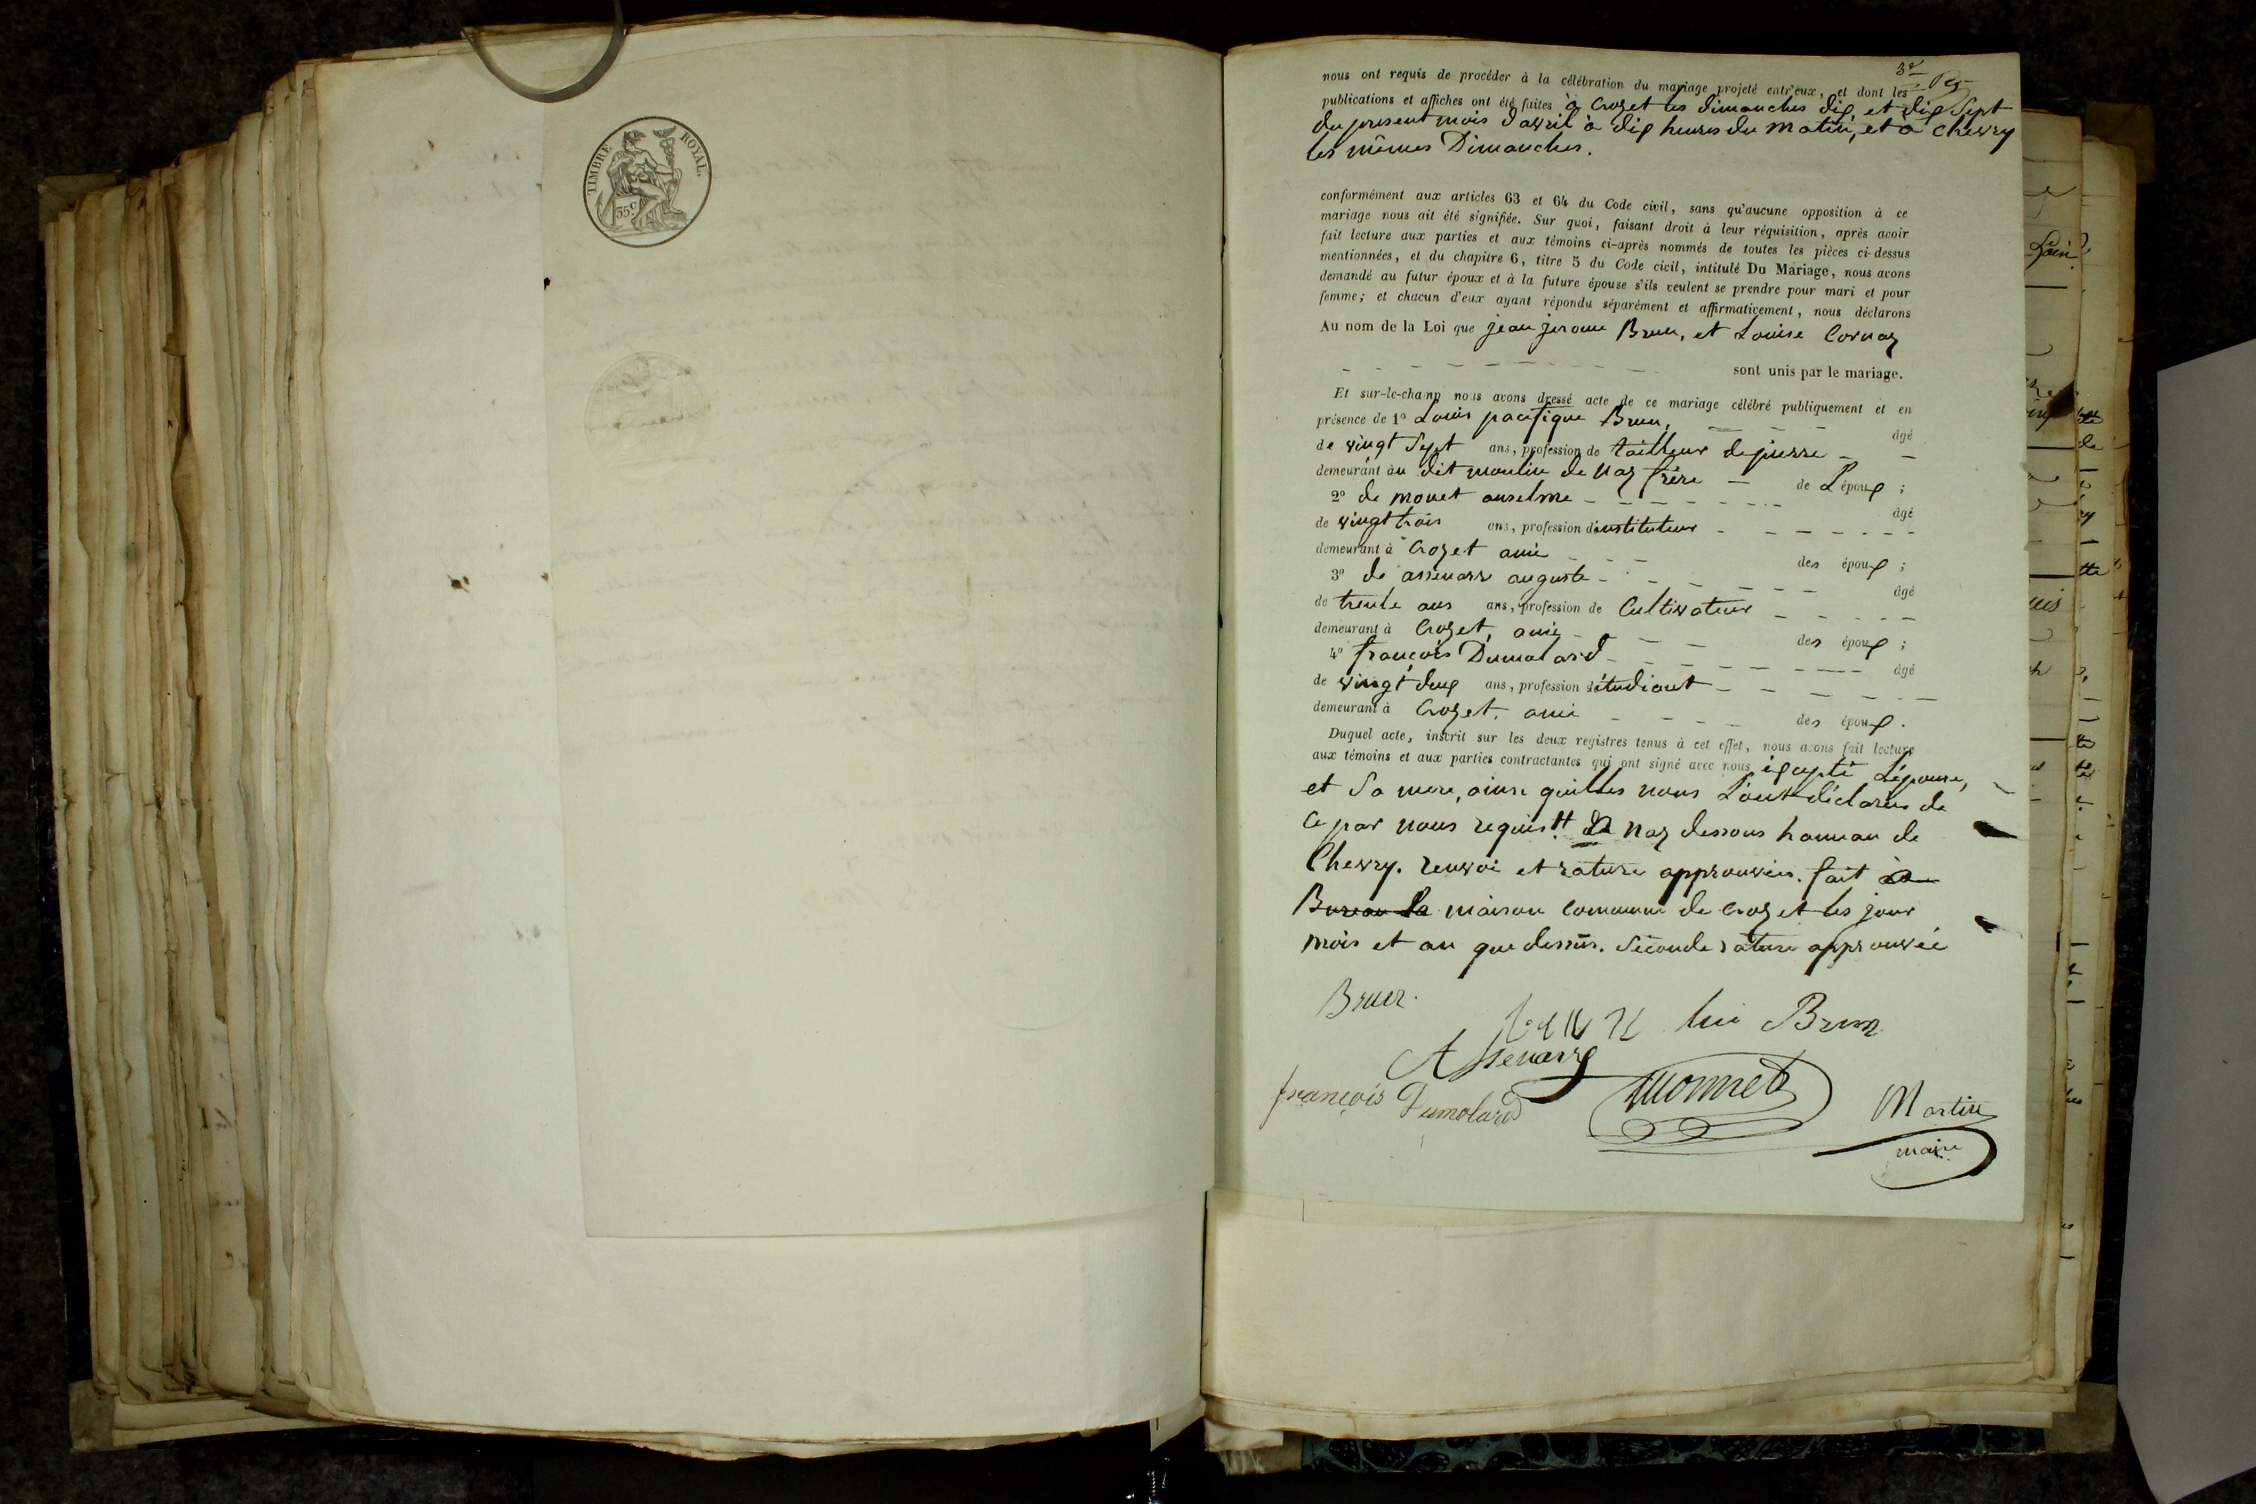 TIMBRE ROYAL.
35 c.
3e
nous ont requis de procéder à la célébration du mariage projeté entr'eux, et dont les
publications et affiches ont été faites à Crozet les dimanches dix, et dix Sept
du present mois d'avril à dix heures du matin, et à chevry
les mêmes Dimanches.
conformément aux articles 63 et 64 du Code civil, sans qu'aucune opposition à ce
mariage nous ait été signifiée. Sur quoi, faisant droit à leur réquisition, après avoir
fait lecture aux parties et aux témoins ci-après nommés de toutes les pièces ci-dessus
mentionnées, et du chapitre 6, titre 5 du Code civil, intitulé Du Mariage, nous avons
demandé au futur époux et à la future épouse s'ils veulent se prendre pour mari et pour
femme; et chacun d'eux ayant répondu séparément et affirmativement, nous déclarons
Au nom de la Loi que jean jerome Brun, et Louise Cornaz
sont unis par le mariage.
Et sur-le-champ nous avons dressé acte de ce mariage célébré publiquement et en
présence de 1º Louis pacifique Brun, âgé
de vingt Sept ans, profession de tailleur de pierre
demeurant au dit moulin de Naz frère de L'époux ;
2º de monet anselme âgé
de vingt trois ans, profession d'instituteur
demeurant à Crozet ami des époux ;
3º de assenarre auguste âgé
de trente ans ans, profession de Cultivateur
demeurant à Crozet, ami des époux ;
4º françois Dumolard âgé
de vingt deux ans, profession d'étudiant
demeurant à Crozet. ami des époux.
Duquel acte, inscrit sur les deux registres tenus à cet effet, nous avons fait lecture
aux témoins et aux parties contractantes qui ont signé avec nous éxcepté L'épouse,
et Sa mere, ainsi quelles nous L'ont déclarées de
ce par nous requis. Naz dessous hameau de
Chevry. renvoi et rature approuvées. fait
Bureau La maison commune de Crozet les jour
mois et an que dessus. Seconde rature approuvée
Brun.
Brun
Assenarre
françois Dumolard
Monnet
Martin
maire